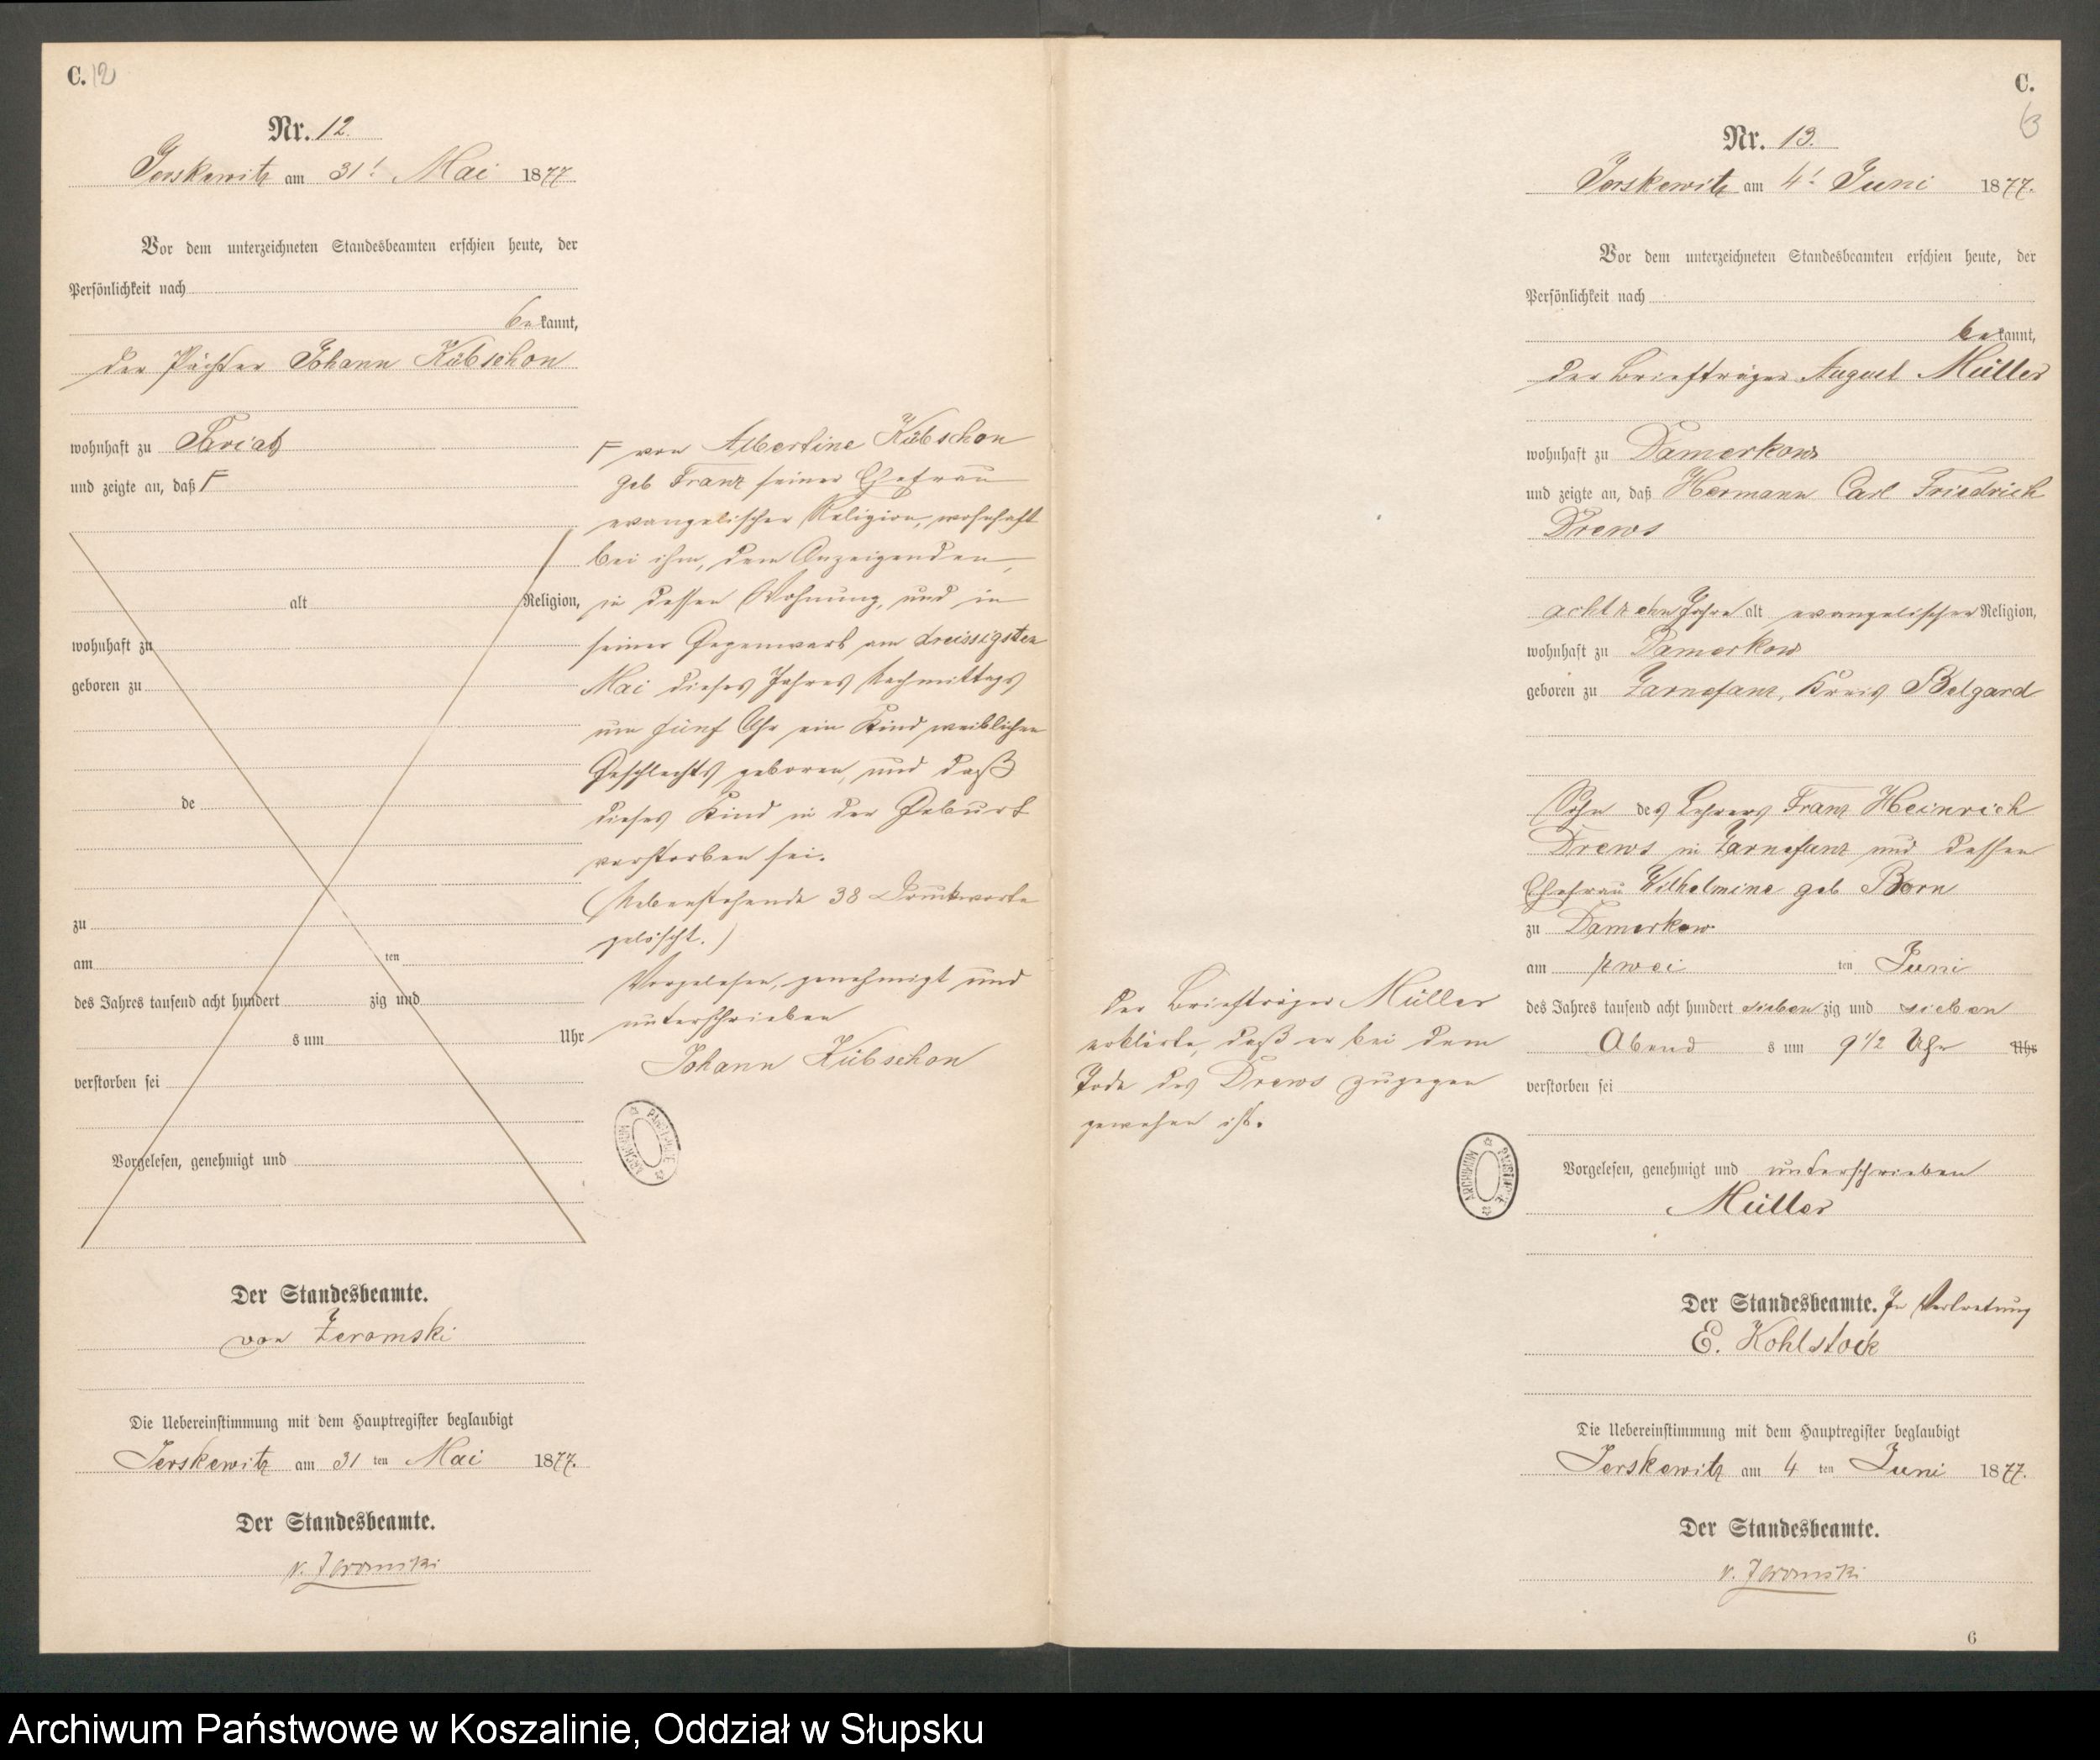 C. 12
Nr. 12.
Jerskewitz am 31t Mai 1877.
Vor dem unterzeichneten Standesbeamten erschien heute, der
Persönlichkeit nach
bekannt,
der Pächter Johann Kübschon
wohnhaft zu
und zeigte an, daß F
alt Religion,
wohnhaft zu
geboren zu
de
zu
am ten
des Jahres tausend acht hundert zig und
s um Uhr
verstorben sei
Vorgelesen, genehmigt und
F von Albertine Kübschon
geb Franz seiner Ehefrau
evangelischer Religion, wohnhaft
bei ihm, dem Anzeigenden,
in dessen Wohnung, und in
seiner Gegenwart am dreissigsten
Mai dieses Jahres Nachmittags
um fünf Uhr ein Kind weiblichen
Geschlechts geboren, und daß
dieses Kind in der Geburt
verstorben sei.
(Nebenstehende 38 Druckworte
gelöscht.)
Vorgelesen, genehmigt und
unterschrieben
Johann Kübschon
Der Standesbeamte.
von Zeromski
Die Uebereinstimmung mit dem Hauptregister beglaubigt
Jerskewitz am 31 ten Mai 1877.
Der Standesbeamte.
v. Zeromski
C.
Nr. 13.
Jerskewitz am 4t Juni 1877.
Vor dem unterzeichneten Standesbeamten erschien heute, der
Persönlichkeit nach
bekannt,
der Briefträger August Müller
wohnhaft zu Damerkow
und zeigte an, daß Hermann Carl Friedrich
Drews
achtzehn Jahre alt evangelischer Religion,
wohnhaft zu Damerkow
geboren zu Zarnefanz, Kreis Belgard
Sohn des Lehrers Franz Heinrich
Drews in Zarnefanz und dessen
Ehefrau Wilhelmine geb Born
zu Damerkow
am zwei ten Juni
des Jahres tausend acht hundert sieben zig und sieben
Abend s um 9 1/2 Uhr Uhr
verstorben sei
Der Briefträger Müller
erklärte, daß er bei dem
Tode des Drews zugegen
gewesen ist.
ARCHIWUM PAŃSTWOWE
Vorgelesen, genehmigt und unterschrieben
Müller
Der Standesbeamte. In Vertretung
E. Kohlstock
Die Uebereinstimmung mit dem Hauptregister beglaubigt
Jerskewitz am 4 ten Juni 1877.
Der Standesbeamte.
v. Zeromski
6
Archiwum Państwowe w Koszalinie, Oddział w Słupsku